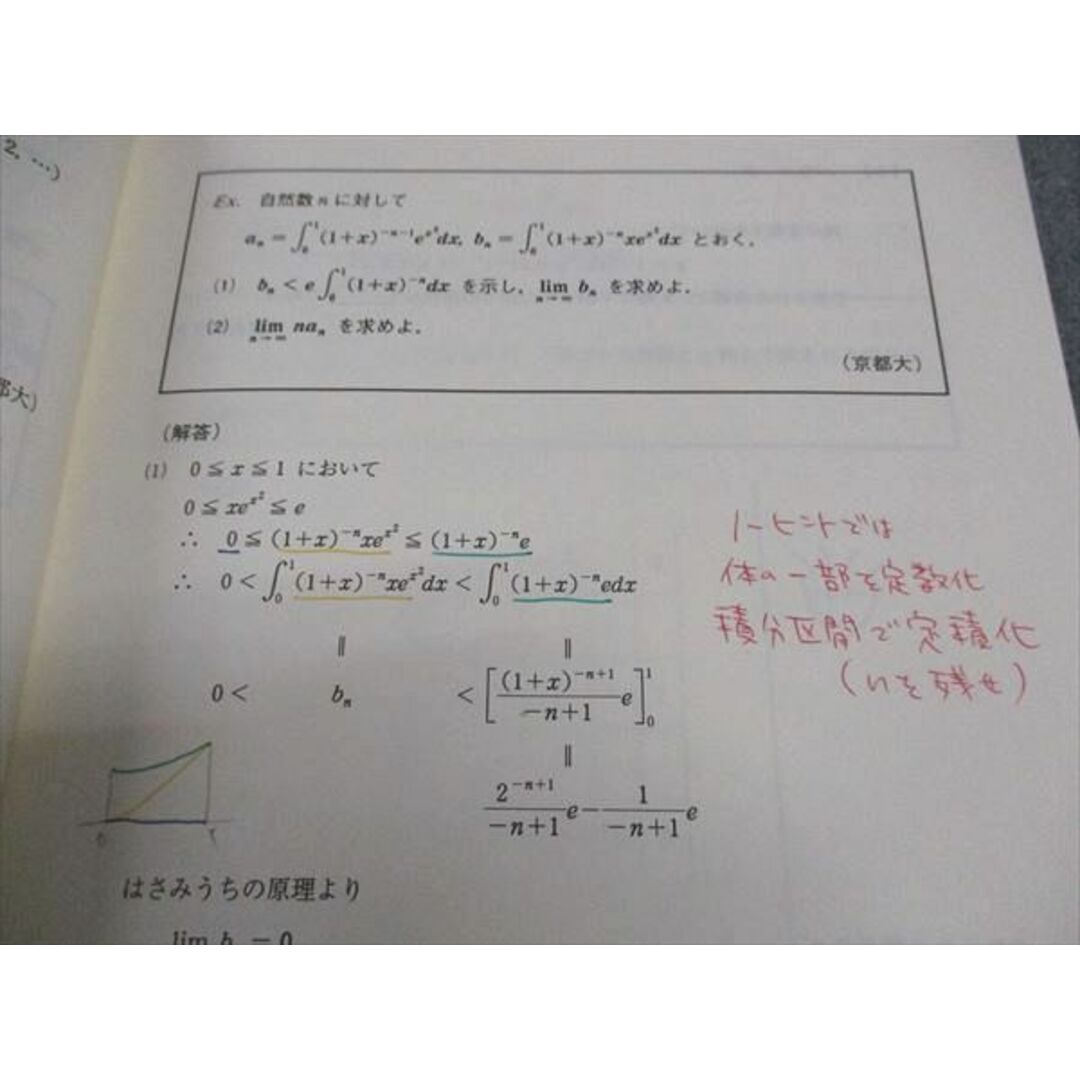 2, …)
都大)
Ex. 自然数 n に対して
a_n = ∫_0^1 (1+x)^{-n-1} e^{x^2} dx, b_n = ∫_0^1 (1+x)^{-n} x e^{x^2} dx とおく.
(1) b_n < e ∫_0^1 (1+x)^{-n} dx を示し, lim_{n→∞} b_n を求めよ.
(2) lim_{n→∞} na_n を求めよ.
(京都大)
(解答)
(1) 0 ≦ x ≦ 1 において
0 ≦ xe^{x^2} ≦ e
∴ 0 ≦ (1+x)^{-n} xe^{x^2} ≦ (1+x)^{-n} e
∴ 0 < ∫_0^1 (1+x)^{-n} xe^{x^2} dx < ∫_0^1 (1+x)^{-n} edx
‖ ‖
0 < b_n < [ (1+x)^{-n+1} / (-n+1) e ]_0^1
‖
2^{-n+1} / (-n+1) e − 1 / (-n+1) e
0 1
はさみうちの原理より
lim b_n = 0
ノーヒントでは
体の一部を定数化
積分区間で定積化
(nを残せ)